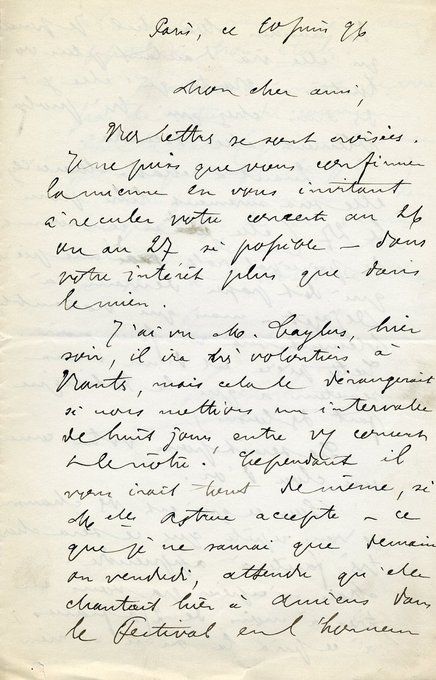 Paris, ce 10 juin 96
Mon cher ami,
Nos lettres se sont croisées.
Je ne puis que vous confirmer
la mienne en vous invitant
à reculer votre concert au 26
ou au 27 si possible – dans
votre intérêt plus que dans
le mien.
J'ai vu M. Caylus, hier
soir, il ira très volontiers à
Nantes, mais cela le dérangerait
si nous mettions un intervalle
de huit jours, entre vos concerts
et le nôtre. Cependant il
irait tout de même, si
Melle Astruc accepte – ce
que je ne saurai que demain
ou vendredi, attendu qu'elle
chantait hier à Amiens dans
le Festival en l'honneur